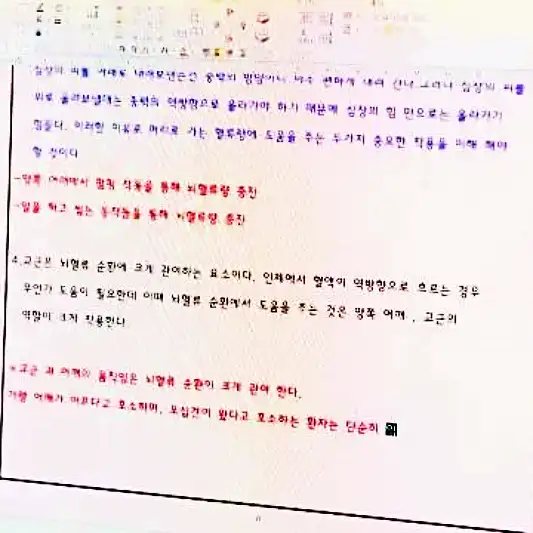 심장의 피를 아래로 내려보낸는건 중력의 방향이니 아주 편하게 내려 간다.그러나 심장의 피를
위로 올려보낼때는 중력의 역방향으로 올라가야 하기 때문에 심장의 힘 만으로는 올라가기
힘들다. 이러한 이유로 머리로 가는 혈류량에 도움을 주는 두가지 중요한 작용을 이해 해야
할 것이다
-양쪽 어깨에서 펌핑 작동을 통해 뇌혈류량 증진
-일을 하고 씹는 동작들을 통해 뇌혈류량 증진
4.고근은 뇌혈류 순환에 크게 관여하는 요소이다. 인체에서 혈액이 역방향으로 흐르는 경우
무언가 도움이 필요한데 이때 뇌혈류 순환에서 도움을 주는 것은 양쪽 어깨 , 고근의
역할이 크게 작용한다
*고근 과 어깨의 움직임은 뇌혈류 순환이 크게 관여 한다.
가령 어깨가 아프다고 호소하며, 오십견이 왔다고 호소하는 환자는 단순히